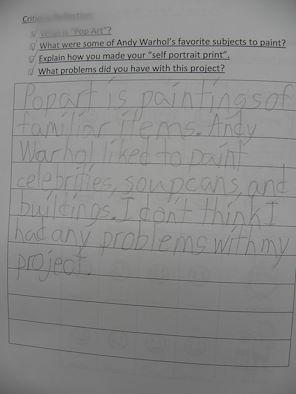 Critic Reflection:
What is "Pop Art"?
What were some of Andy Warhol's favorite subjects to paint?
Explain how you made your "self portrait print".
What problems did you have with this project?
Popart is paintings of
familiar items. Andy
Warhol liked to paint
celebrities, soupcans, and
buildings. I don't think I
had any problems with my
project.